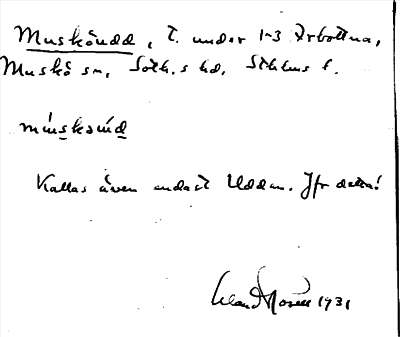 Musköudd, t. under 1-3 Arbottna,
Muskö sn, Soth.s hd, Sthlms l.
Kallas även endast Udden. Jfr detta!
1931